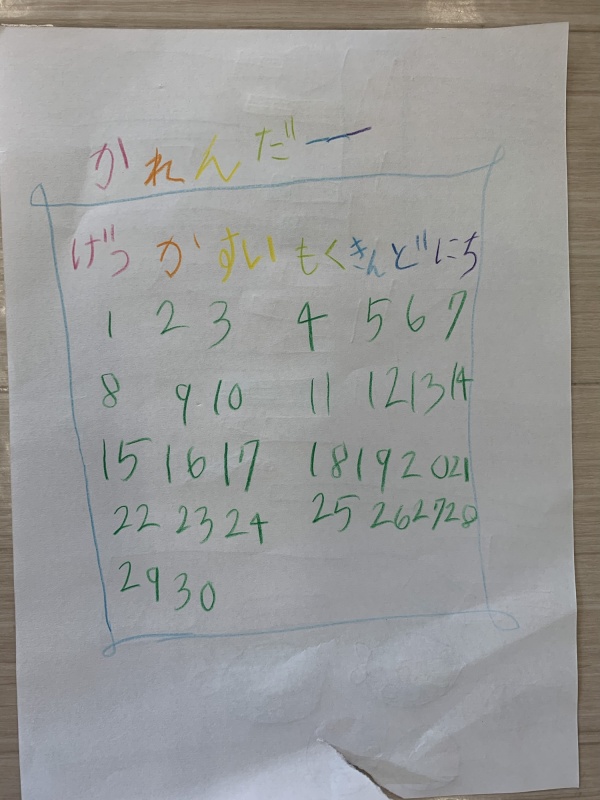 かれんだー
げつ か すい もく きん ど にち
1 2 3 4 5 6 7
8 9 10 11 12 13 14
15 16 17 18 19 20 21
22 23 24 25 26 27 28
29 30